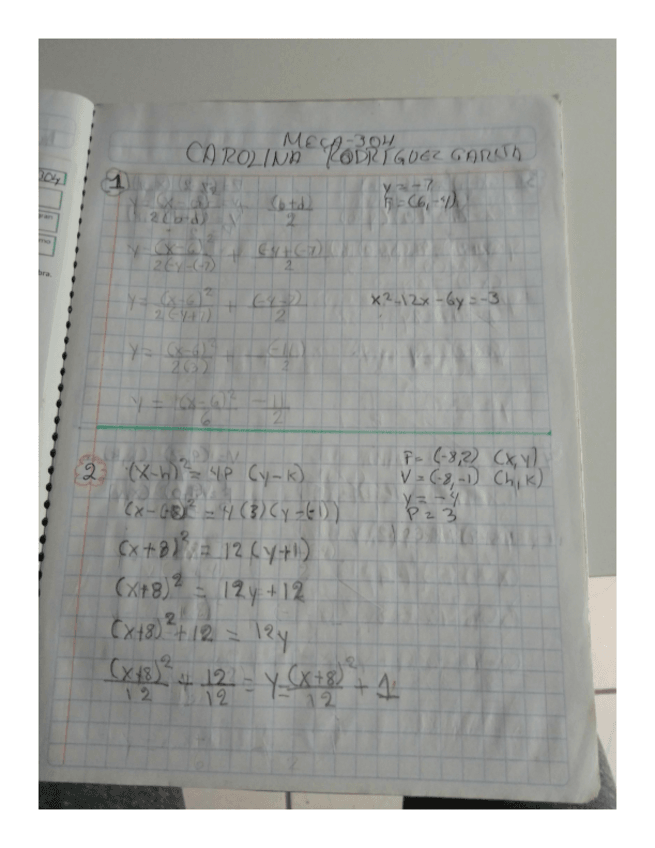 MECA-304
CAROLINA RODRIGUEZ GARCIA
304
1
y = -7
F = (6,-4)
(b+d)
2
2(b-d)
y = (x-6)² + (-4+(-7)
2(-4-(-7) 2
y = (x-6)² + (-4-7)
2(-4+7) 2
x²-12x-6y=-3
y = (x-6)² + (-11)
2(3) 2
y = (x-6)² -11
6 2
2
(x-h)² = 4P (y-k)
F= (-8,2) (x,y)
V = (-8,-1) (h,k)
y = -4
P = 3
(x-(-8)² = 4(3)(y-(-1))
(x+8)² = 12(y+1)
(x+8)² = 12y+12
(x+8)²+12 = 12y
(x+8)² + 12 = y = (x+8)² + 1
12 12 12